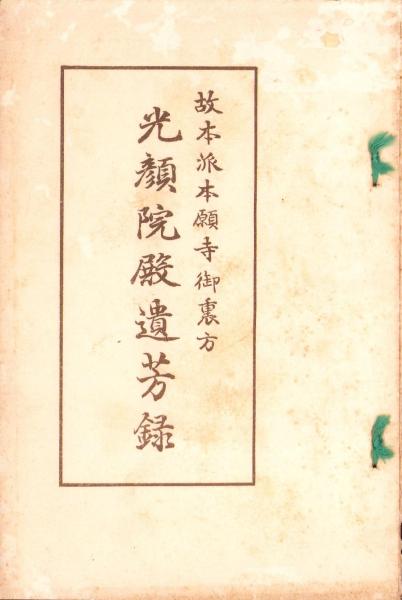 故本派本願寺御裏方
光顏院殿遺芳録